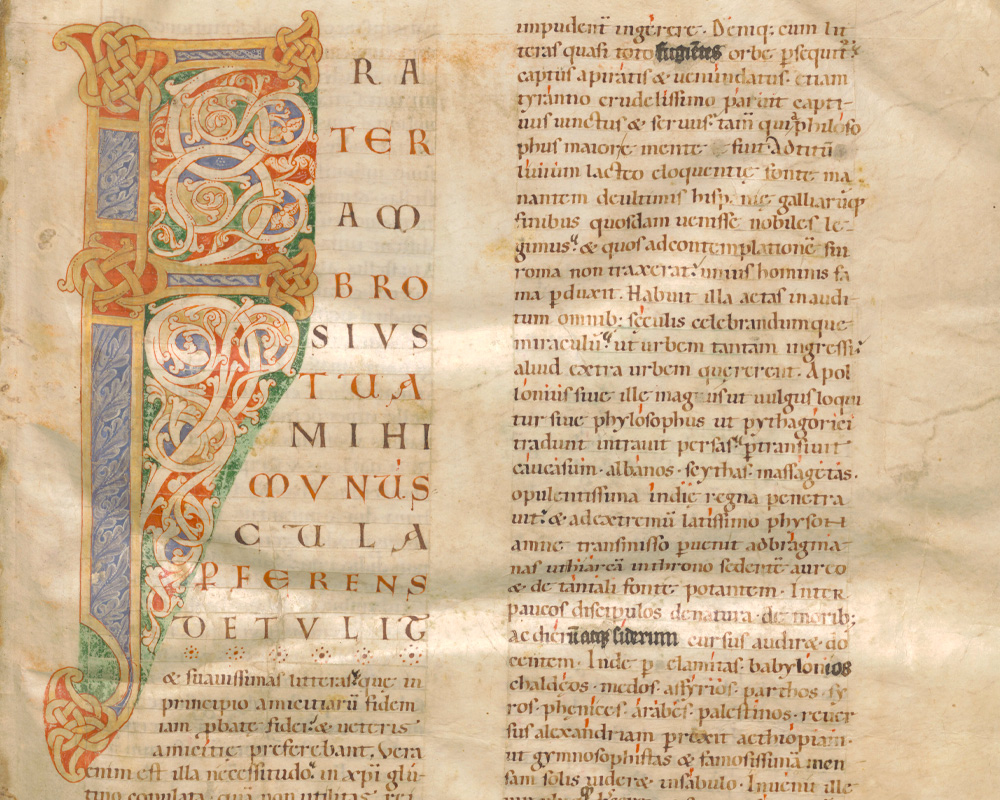 F
RA
TER
AM
BRO
SIVS
TUA
MIHI
MVNUS
CULA
PFERENS
DETVLIT
& suauissimas litteras. que in
principio amicitiarū fidem
iam pbatę fidei. & ueteris
amicitię preferebant. Vera
enim est illa necessitudo. in xpi glu
tino copulata. quā non utilitas rei
impudent ingerere. Deniq; cum lit
teras quasi toto fugientes orbe psequit
captus apiratis & uenundatus. etiam
tyranno crudelissimo paruit capti
uus uinctus & seruus. tam quia philoso
phus maiore mente fuit. Ad titū
liuium lacteo eloquentię fonte ma
nantem deultimis hispanię galliarūq
finibus quosdam uenisse nobiles le
gimus. & quos adcontemplationē sui
roma non traxerat. unius hominis fa
ma pduxit. Habuit illa aetas inaudi
tum omnib; seculis celebrandumque
miraculū. ut urbem tantam ingressi.
aliud extra urbem quererent. Apol
lonius siue ille magus ut uulgus loqui
tur siue phylosophus ut pythagorici
tradunt intrauit persas. ptransiuit
caucasum. albanos. scythas. massagetas.
opulentissima indię regna penetra
uit. & adextremū latissimo physon
amne transmisso puenit adbragma
nas. ut hiarcā inthrono sedentē aureo
& de tantali fonte potantem. Inter
paucos discipulos denatura. de morib;
ac dierū atq; siderum cursus audiret do
centem. Inde p elamitas. babylonios
chaldeos. medos. assyrios. parthos. sy
ros. phenices. arabes. palestinos. reuer
sus alexandriam prexit aethiopiam.
ut gymnosophistas & famosissimā men
sam solis uideret insabulo. Inuenit ille